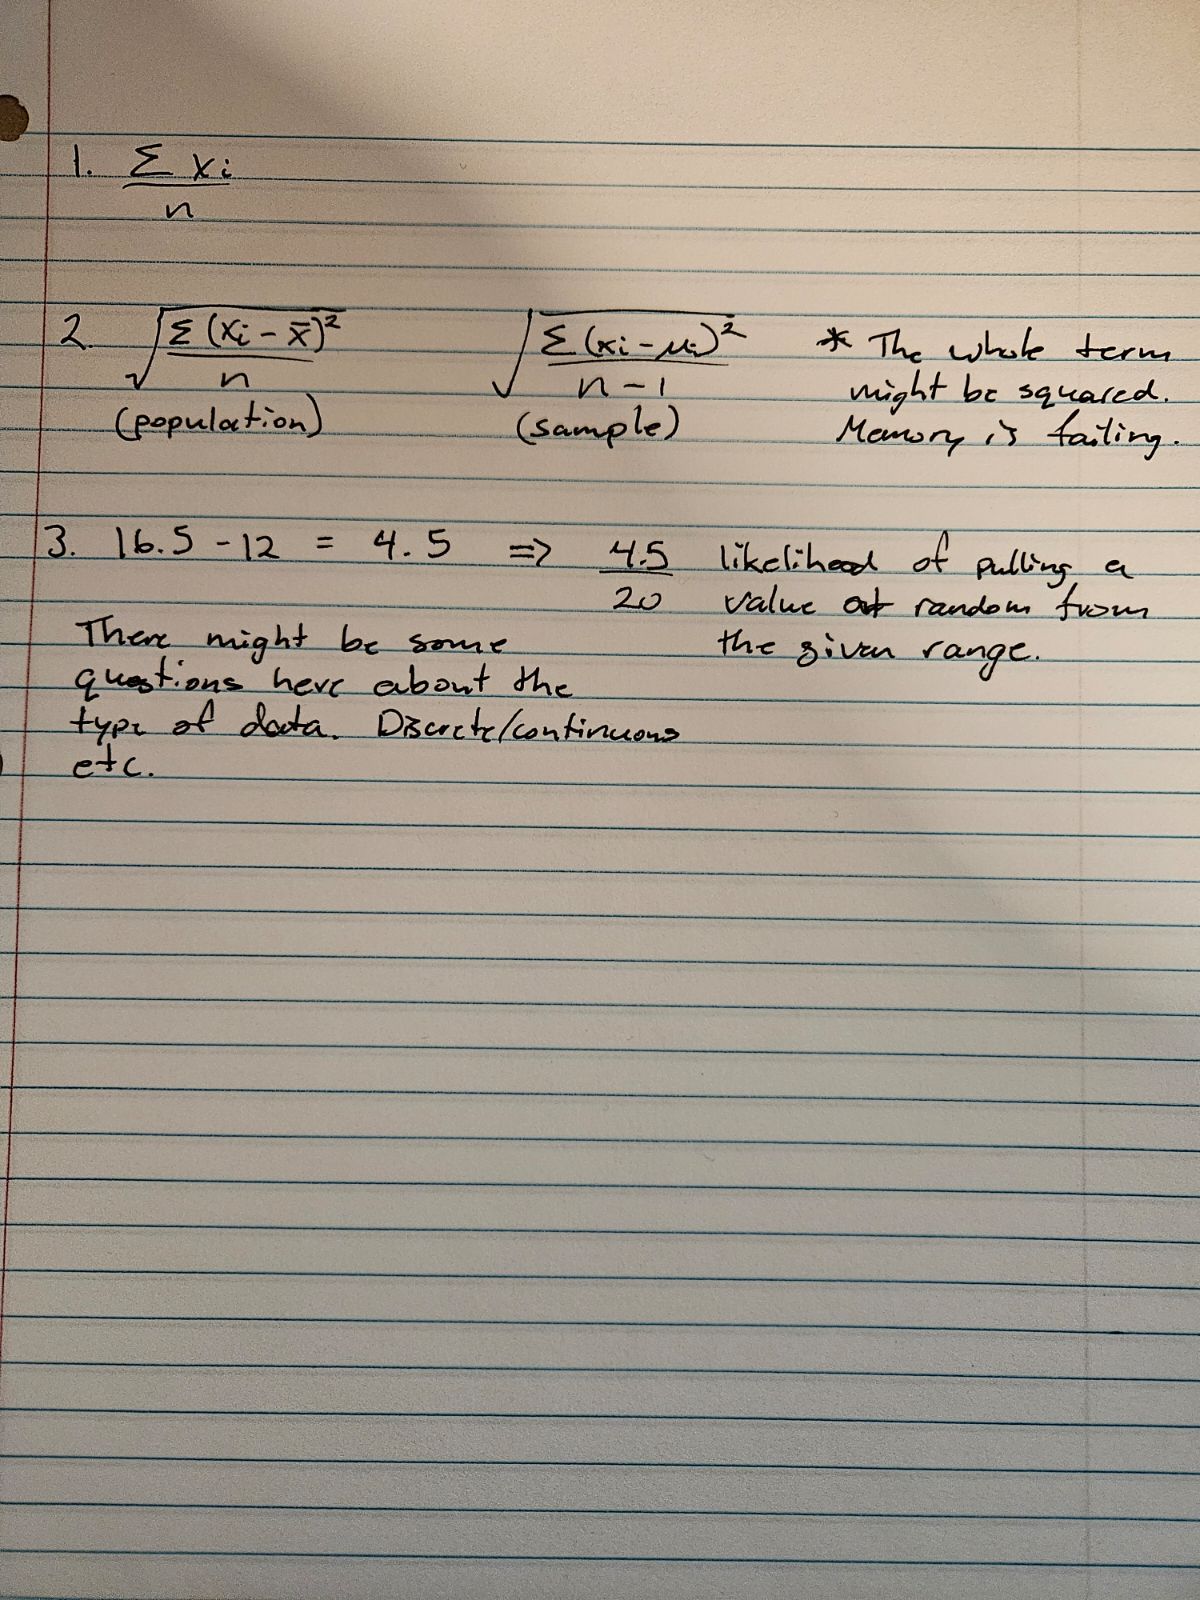 1. Σ xi
n
2. √ Σ (xi - x̄)² / n
(population)
√ Σ (xi - μi)² / n - 1
(sample)
* The whole term
might be squared.
Memory is failing.
3. 16.5 - 12 = 4.5 => 4.5 / 20
likelihood of pulling a
value at random from
the given range.
There might be some
questions here about the
type of data. Discrete/continuous
etc.